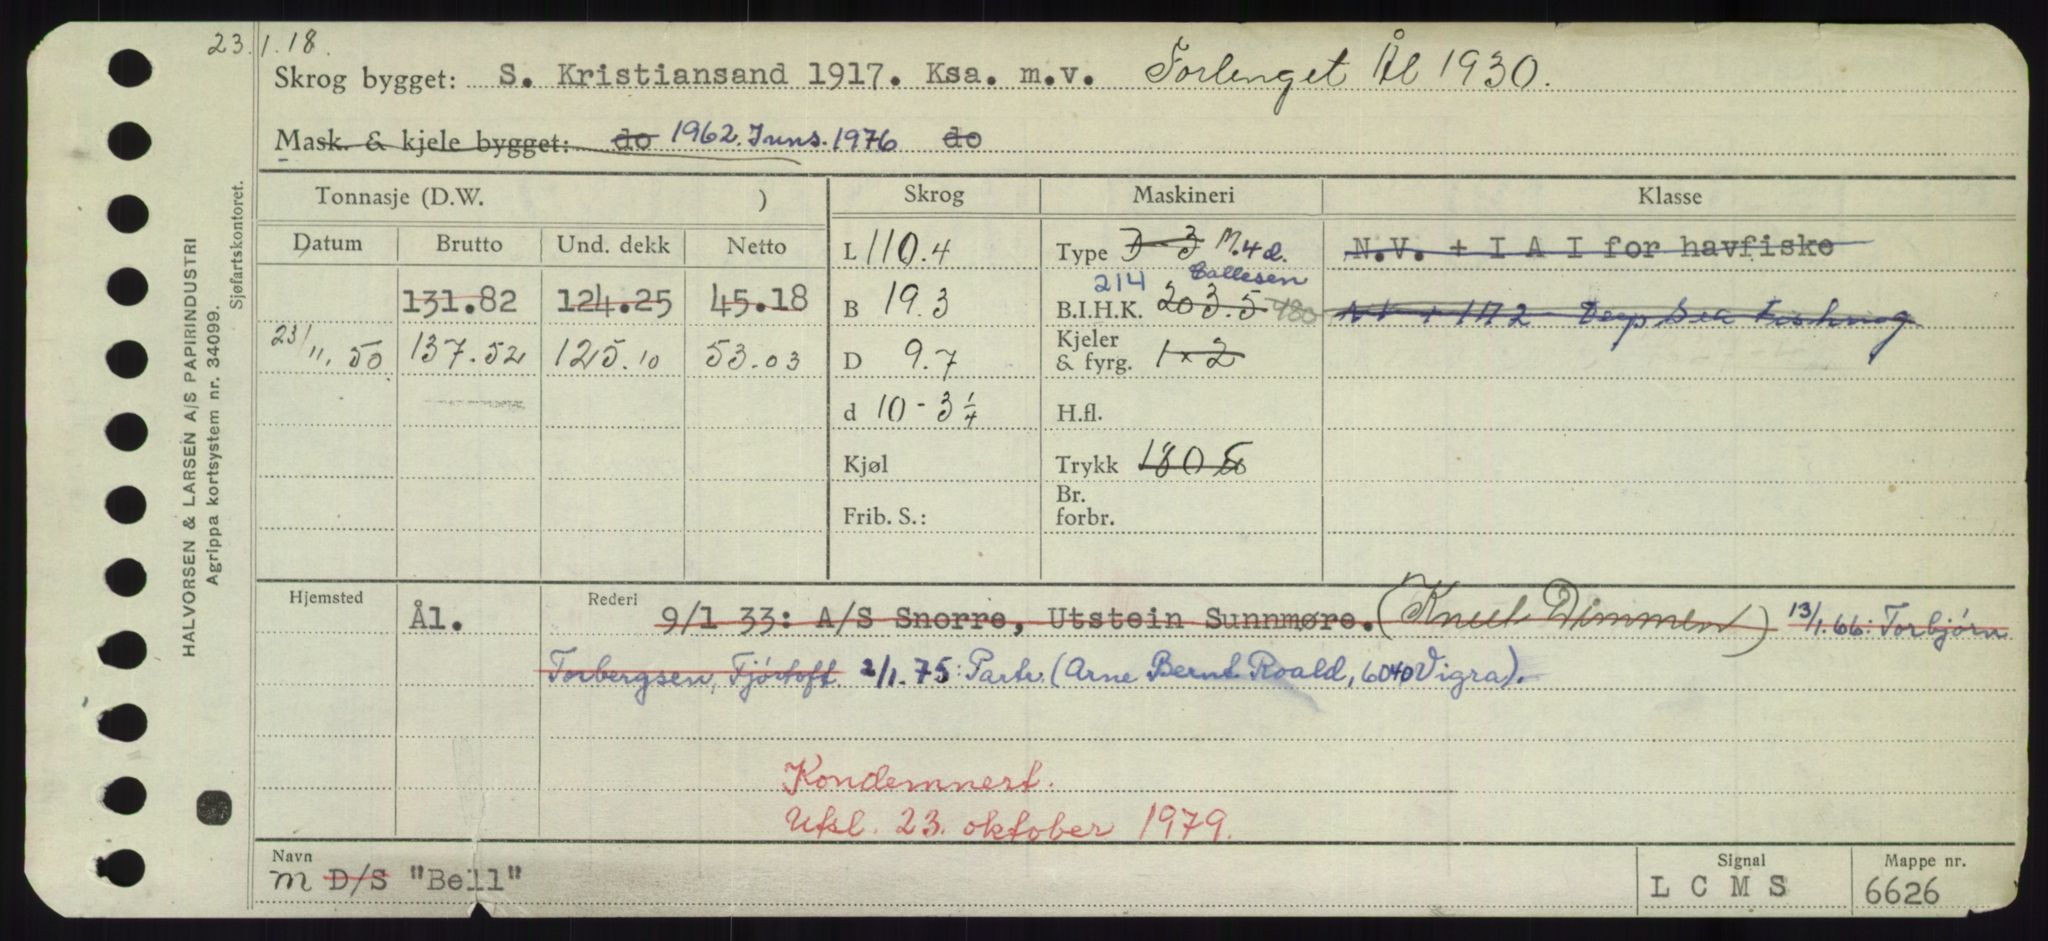 23.1.18.
Skrog bygget: S. Kristiansand 1917. Ksa. m.v. Forlenget Ål 1930.
Mask. & kjele bygget: do 1962. Inns. 1976 do
Tonnasje (D.W. ) Skrog Maskineri Klasse
Datum Brutto Und. dekk Netto
L 110.4 Type 3 M. 4 d. N.V. + I A I for havfiske
Callesen
131.82 124.25 45.18 B 19.3 214 B.I.H.K. 203.5 480 Deep Sea Fishing
23/11.50 137.52 125.10 53.03 D 9.7 Kjeler & fyrg. 1 x 2
d 10 - 3 1/4 H.fl.
Kjøl Trykk 180
Frib. S.: Br. forbr.
Hjemsted Ål. Rederi 9/1 33: A/S Snorre, Utstein Sunnmøre. (Knut Dimmen) 13/1.66: Torbjørn
Torbergsen, Fjørtoft. 2/1.75: Partr. (Arne Bernt Roald, 6040 Vigra).
Kondemnert.
Utsl. 23. oktober 1979.
Navn Signal Mappe nr.
M D/S "Bell" L C M S 6626
HALVORSEN & LARSEN A/S PAPIRINDUSTRI
Agrippa kortsystem nr. 34099.
Sjøfartskontoret.